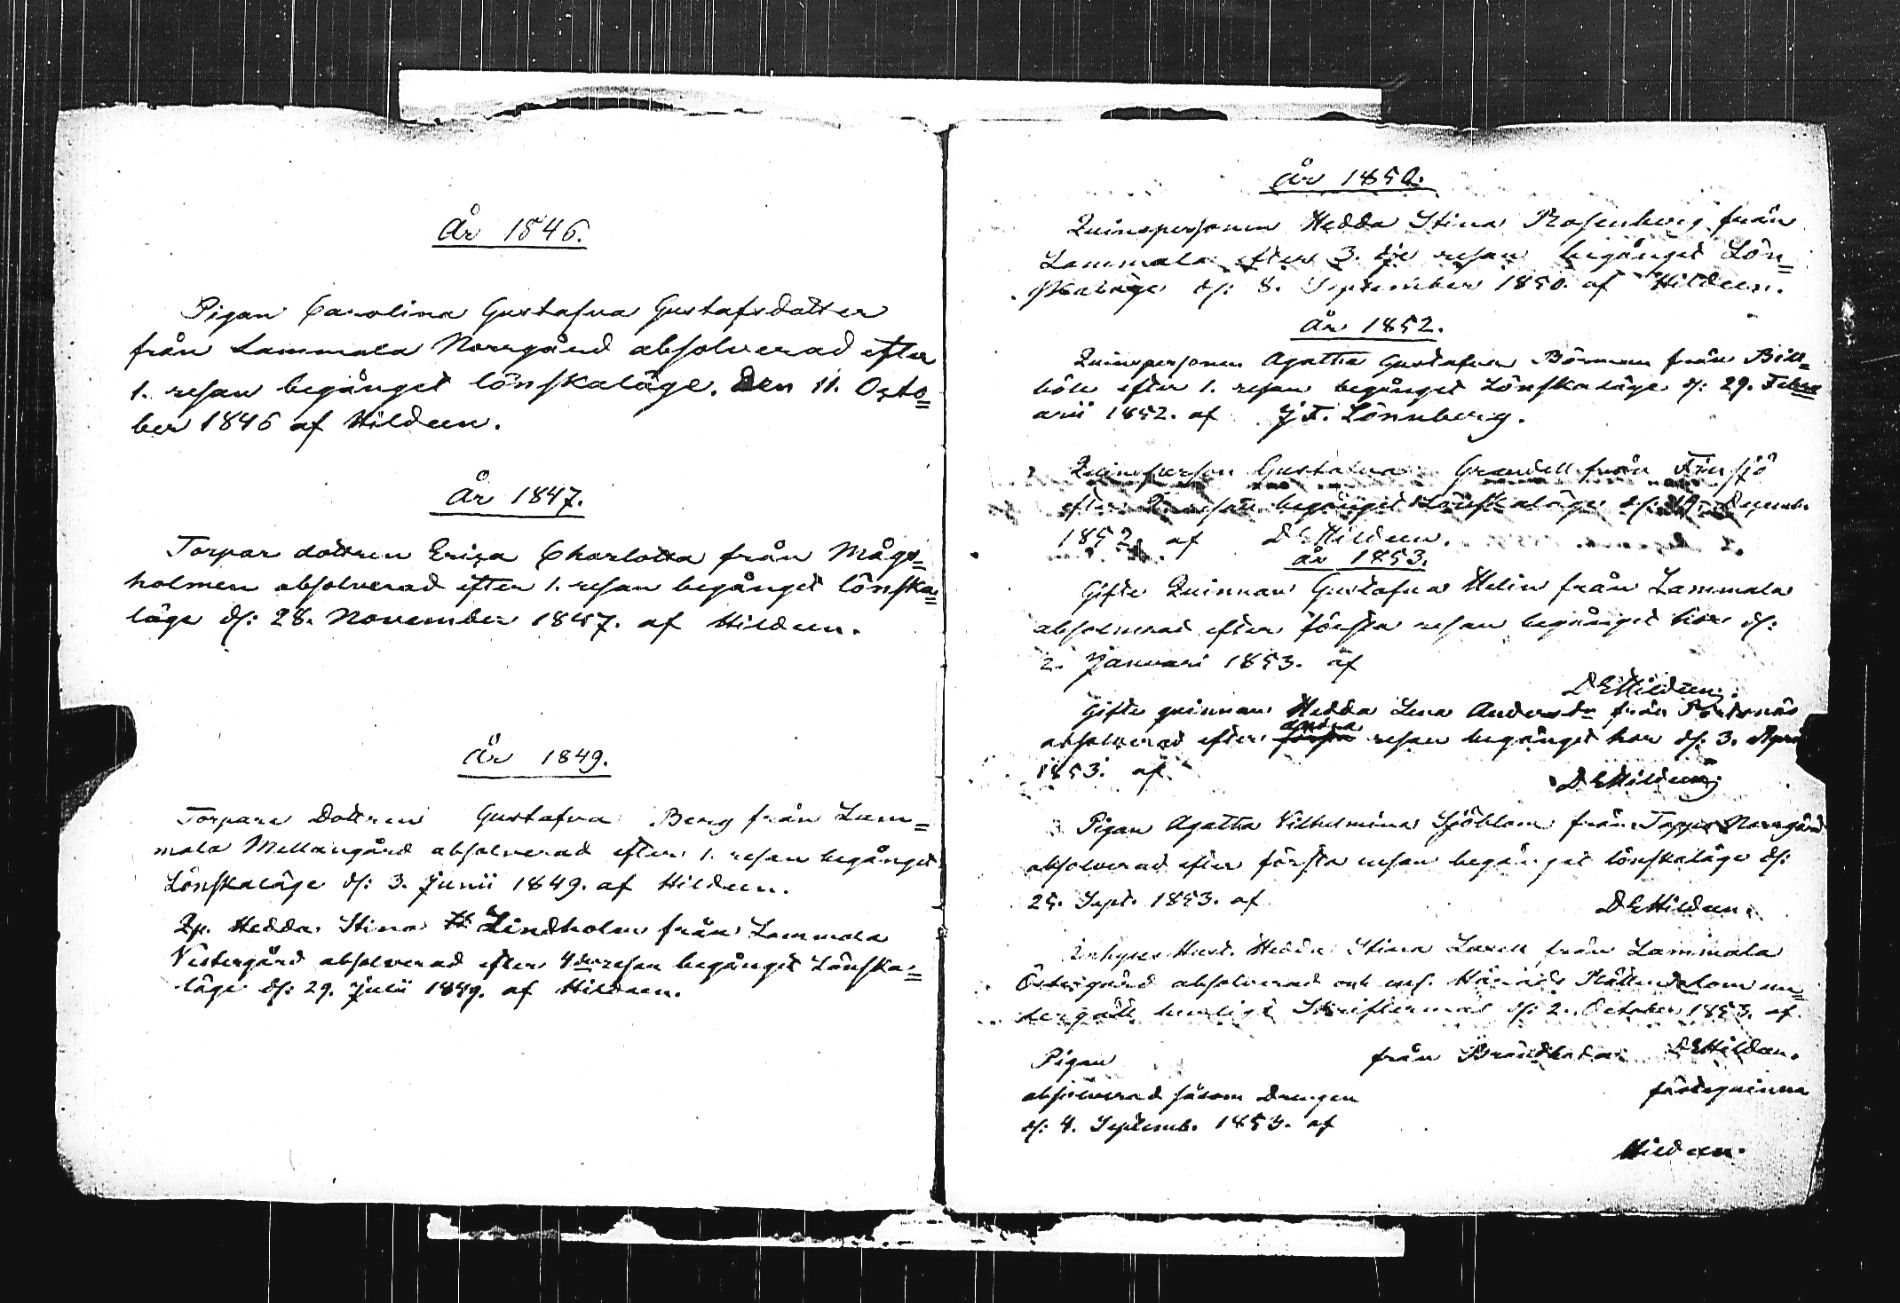 År 1846.
Pigan Carolina Gustafva Gustafsdotter
från Lammala Norrgård absolverad efter
1. resan begånget lönskaläge. Den 11. Octo=
ber 1846 af Hildeen.
År 1847.
Torpar dottren Erica Charlotta från Mågs=
holmen absolverad efter 1. resan begånget lönska=
läge d: 28. November 1847. af Hildeen.
År 1849.
Torpare Dottren Gustafva Berg från Lam=
mala Mellangård absolverad efter 1. resan begånget
Lönskaläge d: 3. Junii 1849. af Hildeen.
Qp. Hedda Stina Lindholm från Lammala
Vestergård absolverad efter 4de resan begånget Lönska=
läge d: 29. Julii 1849. af Hildeen.
År 1850.
Quinspersonen Hedda Stina Rosenberg från
Lammala efter 3. dje resan begånget Lön=
skaläge d: 8. September 1850. af Hildeen.
År 1852.
Quinspersonen Agatha Gustafva Börman från Böle=
efter 1. resan begånget Lönskaläge d: 29. Febru
arii 1852. af J. F. Lönnberg.
Quinsperson Gustafva Grandell från Finsjö
efter resan begånget Lönskaläge d: 19. Decemb.
1852. af DEHildeen.
År 1853.
Gifte Quinnan Gustafva Helin från Lammala
absolverad efter första resan begånget hor d:
2. Januari 1853. af
DEHildeen.
Gifte quinnan Hedda Lena Andersdr från
absolverad efter andra resan begånget hor d: 3. April
1853. af
DEHildeen
Pigan Agatha Vilhelmina Sjöblom från Norrgård
absolverad efter första resan begånget lönskaläge d:
25. Sept. 1853. af
DEHildeen.
Hust. Hedda Stina Laxell från Lammala
Östergård absolverad och enl. Härads Rättens dom un=
dergått hemligt Skriftermål d: 2. October 1853. af
Pigan från DEHildeen.
absolverad såsom Drengen fästeqvinna
d: 4. Septemb. 1853. af
Hildeen.